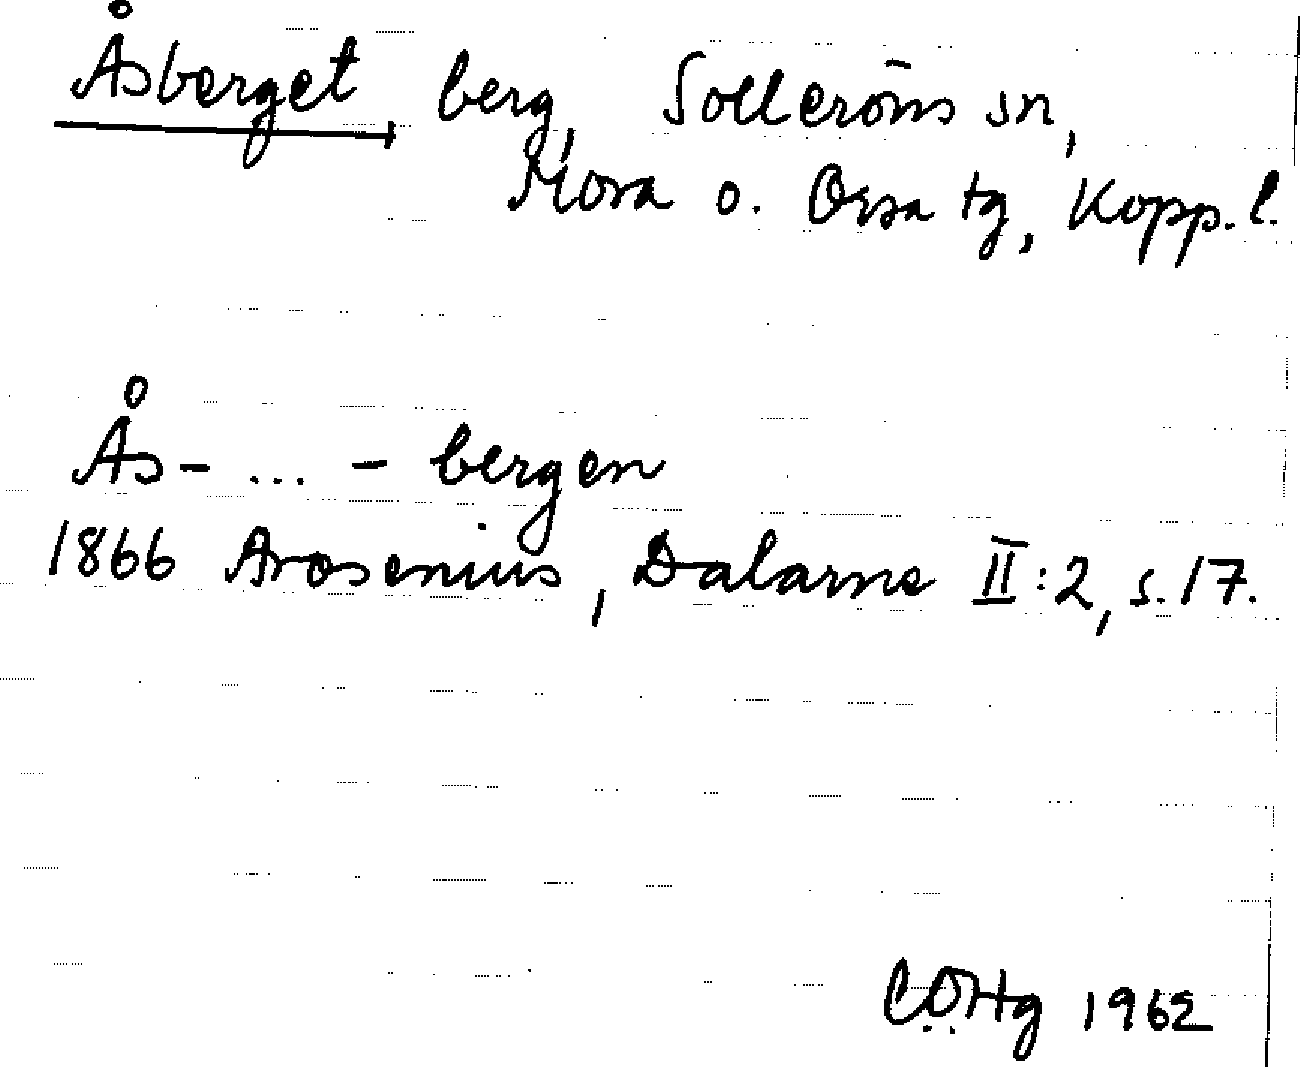 Åsberget berg, Solleröns sn,
Mora o. Orsa tg, Kopp. l.
Ås- ... - bergen
1866 Arosenius, Dalarne II:2, s. 17.
1962